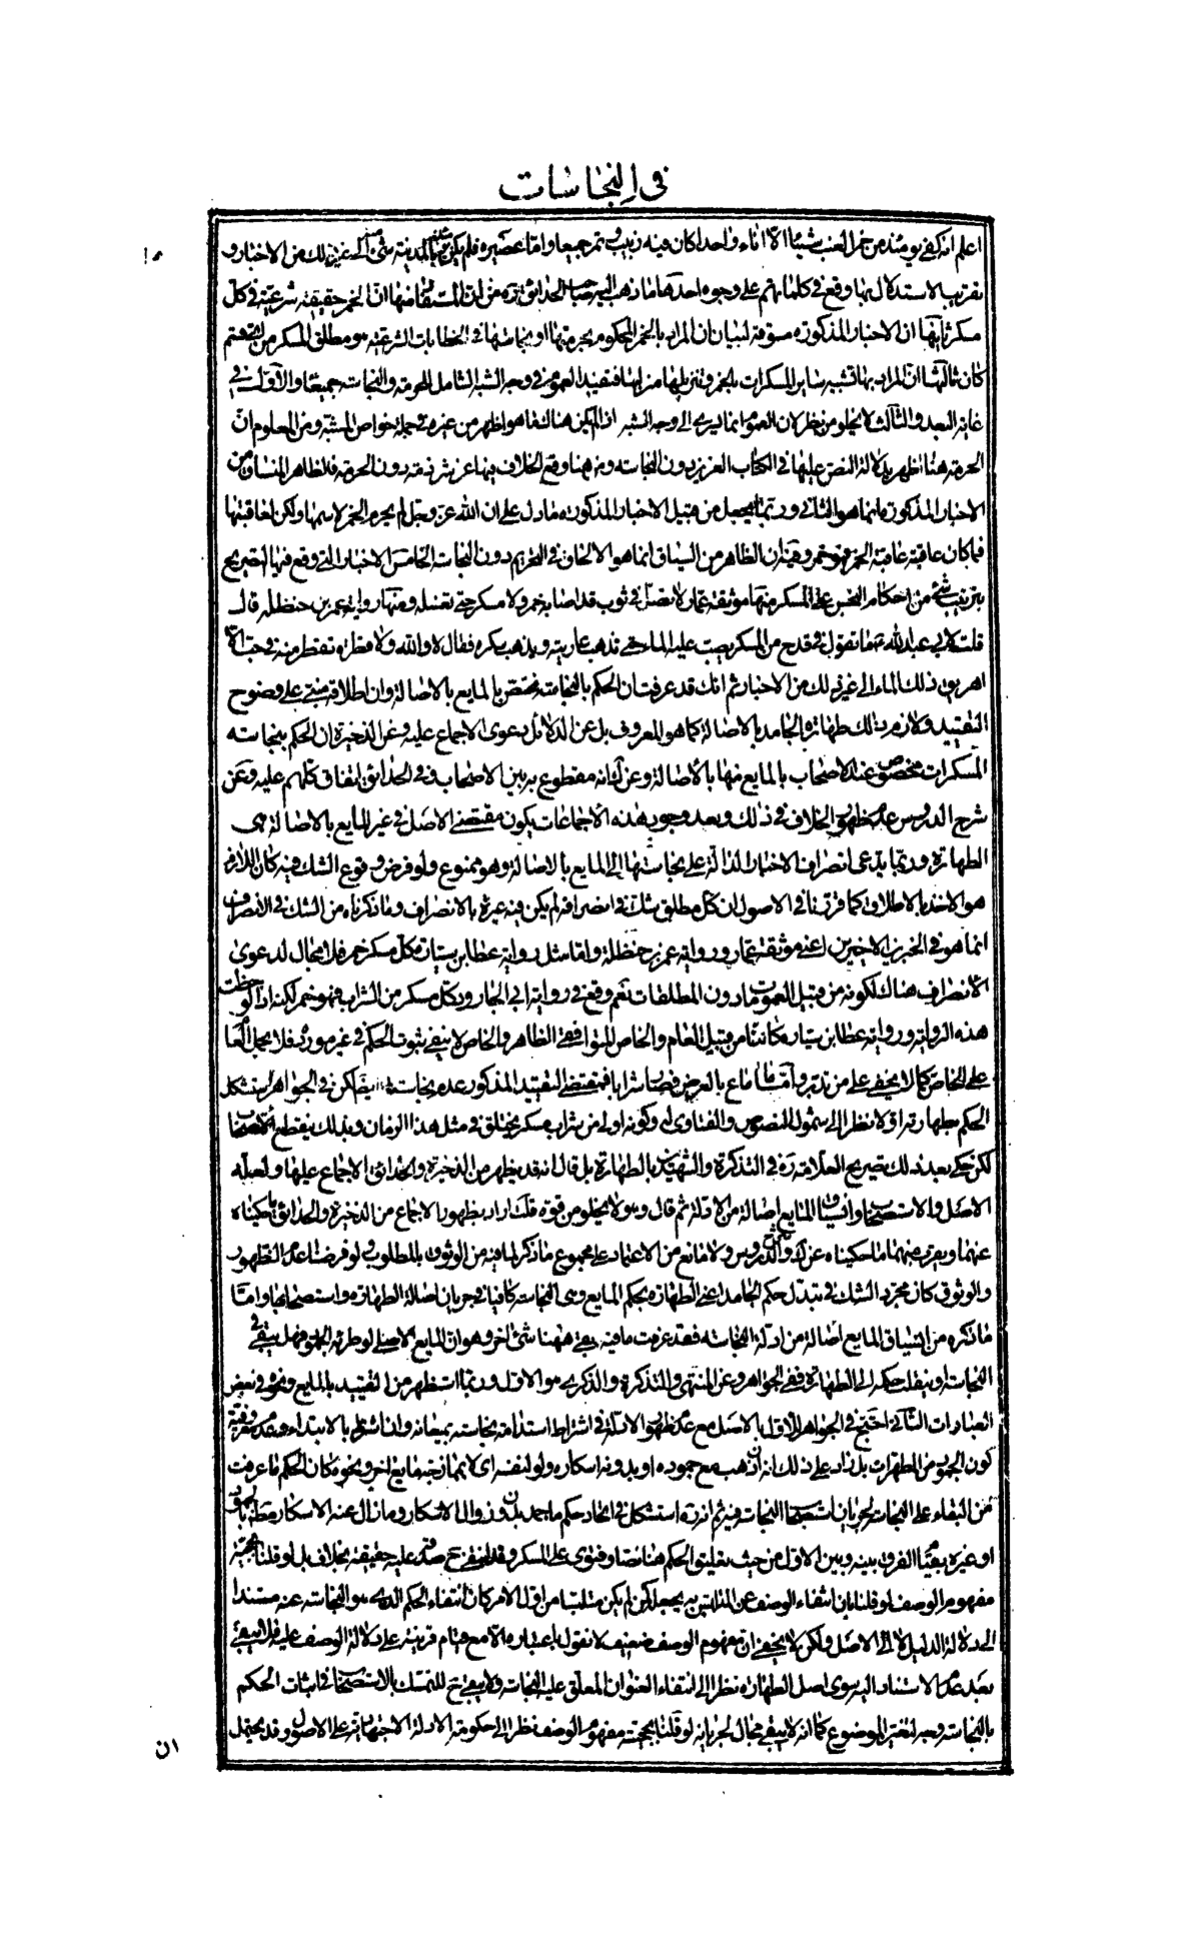 في النجاسات
اعلم انه كفى يومئذ من خمر العنب شيئا الا اناء واحدا كان فيه زبيب وتمر جميعا واما عصيره فلم يكن بالمدينة شئ الى غير ذلك من الاخبار و
تقريب الاستدلال بها وقع في كلماتهم على وجوه احدها ما ذهب اليه صاحب الحدائق ره من ان المستفاد منها ان الخمر حقيقة شرعية في كل
مسكر ثانيها ان الاخبار المذكورة مسوقة لبيان ان المراد بالخمر المحكوم بحرمتها او نجاستها في الخطابات الشرعية هو مطلق المسكر من اي قسم
كان ثالثها ان المراد بها تشبيه ساير المسكرات بالخمر وتنزيلها منزلتها فيفيد العموم في وجه الشبه الشامل للحرمة والنجاسة جميعا والاول في
غاية البعد والثالث لا يخلو من نظر لان العموم انما يسري الى وجه الشبه اذا لم يكن هناك ما هو اظهر من غيره في جملة خواص المشبه ومن المعلوم ان
الحرمة هنا اظهر بدلالة النص عليها في الكتاب العزيز دون النجاسة ومن هنا وقع الخلاف فيها عن شرذمة دون الحرمة فالظاهر المنساق من
الاخبار المذكورة انما هو الثاني وربما يجعل من قبيل الاخبار المذكورة ما دل على ان الله عز وجل لم يحرم الخمر لاسمها ولكن لعاقبتها
فما كان عاقبته عاقبة الخمر فهو خمر وفيه ان الظاهر من السياق انما هو الالحاق في التحريم دون النجاسة الخامس الاخبار التي وقع فيها التصريح
بترتيب شئ من احكام النجس على المسكر منها موثقة عمار لا تصل في ثوب قد اصابه خمر ولا مسكر حتى تغسله ومنها رواية عمر بن حنظلة قال
قلت لابي عبد الله ع ما تقول في قدح من المسكر يصب عليه الماء حتى تذهب عاديته ويذهب سكره فقال لا والله ولا قطرة تقطر منه في حب الا
اهريق ذلك الماء الى غير ذلك من الاخبار ثم انك قد عرفت ان الحكم بالنجاسة يختص بالمايع بالاصالة وان اطلاقه مبتنى على وضوح
التقييد ولازم ذلك طهارة الجامد بالاصالة كما هو المعروف بل عن الدلائل دعوى الاجماع عليه وعن الذخيرة ان الحكم بنجاسة
المسكرات مخصوص عند الاصحاب بالمايع منها بالاصالة وعن ك انه مقطوع به بين الاصحاب وفي الحدائق اتفاق كلهم عليه وعن
شرح الدروس عدم ظهور الخلاف في ذلك وبعد وجود هذه الاجماعات يكون مقتضى الاصل في غير المايع بالاصالة هى
الطهارة وربما يدعى انصراف الاخبار الدالة على نجاستها الى المايع بالاصالة وهو ممنوع ولو فرض وقوع الشك فيه كان اللازم
هو الاخذ بالاطلاق كما قررنا في الاصول ان كل مطلق شك في انصرافه لم يكن فيه عبرة بالانصراف وما ذكرناه من الشك في الانصراف
انما هو في الخبرين الاخيرين اعني موثقة عمار ورواية عمر بن حنظلة واما مثل رواية عطا بن يسار كل مسكر خمر فلا مجال لدعوى
الانصراف هناك لكونه من قبيل العمومات دون المطلقات نعم وقع في رواية ابي الجارود كل مسكر من الشراب فهو خمر لكنه اذا لوحظت
هذه الرواية ورواية عطا بن يسار كانتا من قبيل العام والخاص المتوافقي الظاهر والخاص لا ينفي ثبوت الحكم في غير مورده فلا يحمل العام
على الخاص كما لا يخفى على من تدبر واما ما ماع بالعرض فصار شرابا فمقتضى التقييد المذكور عدم نجاسته ايضا لكن في الجواهر استشكل
الحكم بطهارته اولا نظرا الى شمول النصوص والفتاوى له وكونه اولى من شراب مسكر يختلق في مثل هذا الزمان وبذلك ينقطع الاستصحاب
لكن حكى بعد ذلك تصريح العلامة ره في التذكرة والشهيدين بالطهارة بل قال انه قد يظهر من الذخيرة والحدائق الاجماع عليها ولعله
الاصل والاستصحاب وانسياق المايع اصالة من الادلة ثم قال وهو لا يخلو من قوة قلت اراد بظهور الاجماع من الذخيرة والحدائق ما حكيناه
عنهما ويقرب منهما ما حكيناه عن ك والدروس ولا مانع من الاعتماد على مجموع ما ذكر لما فيه من الوثوق بالمطلوب ولو فرضنا عدم الظهور
والوثوق كان مجرد الشك في تبدل حكم الجامد اعني الطهارة بحكم المايع وهى النجاسة كافيا في جريان اصالة الطهارة واستصحابها واما
ما ذكره من انسياق المايع اصالة من ادلة النجاسة فقد عرفت ما فيه بقى هيهنا شئ اخر وهو ان المايع الاصلي لو طرئه الجمود فهل يبقى في
النجاسة او ينقلب حكمه الى الطهارة ففي الجواهر وعن المنتهى والتذكرة والذكرى هو الاول وربما استظهر من التقييد بالمايع ونحوه في بعض
العبارات الثاني احتج في الجواهر للاول بالاصل مع عدم ظهور الادلة في اشتراط استدامة نجاسته بميعانه وان اشترط بالابتداء وعدم معروفية
كون الجمود من المطهرات بل زاد على ذلك انه ان ذهب مع جموده او بدونه اسكاره ولو لنفسه اى لا بممازجة مايع اخر ونحوه كان الحكم ما عرفت
من البقاء على النجاسة لجريان استصحاب النجاسة فيه ثم انه ره استشكل في اتحاد حكم ما جمد بدون زوال الاسكار وما زال عنه الاسكار مطلقا بالجمود
او غيره مبينا الفرق بينه وبين الاول من حيث تعليق الحكم هنا نصا وفتوى على المسكر وقد انتفى ح صدقه عليه حقيقة بخلاف بل لو قلنا بحجية
مفهوم الوصف او قلنا بان انتفاء الوصف عن المتلبس به يجعله كمن لم يكن متلبسا من اول الامر كان انتفاء الحكم الذي هو النجاسة عنه مستندا
الى دلالة الدليل لا الى الاصل ولكن لا يخفى ان مفهوم الوصف ضعيف لا نقول باعتباره الا مع قيام قرينة على دلالة الوصف عليه فلا يبقى
بعد عدم الاستناد اليه سوى اصل الطهارة نظرا الى انتفاء العنوان المعلق عليه النجاسة ولا يبقى ح للتمسك بالاستصحاب في اثبات الحكم
بالنجاسة وجه لتغير الموضوع كما انه لا يبقى مجال لجريانه لو قلنا بحجية مفهوم الوصف نظرا الى حكومة الادلة الاجتهادية على الاصول وقد يحتمل
ان